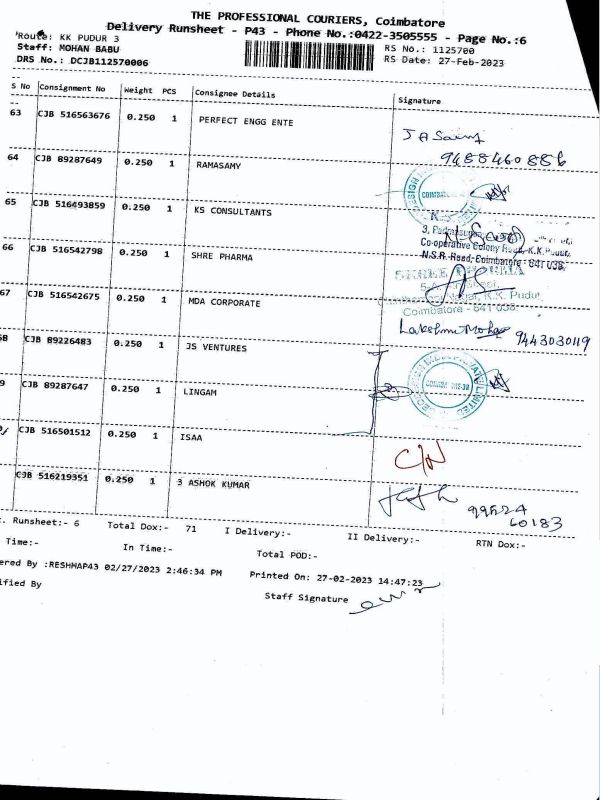 THE PROFESSIONAL COURIERS, Coimbatore
Delivery Runsheet - P43 - Phone No.:0422-3505555 - Page No.:6
Route: KK PUDUR 3
Staff: MOHAN BABU
DRS No.: DCJB112570006
RS No.: 1125700
RS Date: 27-Feb-2023
S No Consignment No Weight PCS Consignee Details Signature
63 CJB 516563676 0.250 1 PERFECT ENGG ENTE
9488460886
64 CJB 89287649 0.250 1 RAMASAMY
65 CJB 516493859 0.250 1 KS CONSULTANTS
Co-operative Colony Road, K.K. Pudur,
N.S.R. Road, Coimbatore - 641 038.
66 CJB 516542798 0.250 1 SHRE PHARMA
K.K. Pudur,
Coimbatore - 641 038.
67 CJB 516542675 0.250 1 MDA CORPORATE
Lakshmi Mohan 9443030119
68 CJB 89226483 0.250 1 JS VENTURES
9 CJB 89287647 0.250 1 LINGAM
CJB 516501512 0.250 1 ISAA
C/N
CJB 516219351 0.250 1 3 ASHOK KUMAR
99524
60183
. Runsheet:- 6 Total Dox:- 71 I Delivery:- II Delivery:- RTN Dox:-
Time:- In Time:- Total POD:-
ered By :RESHMAP43 02/27/2023 2:46:34 PM Printed On: 27-02-2023 14:47:23
ified By Staff Signature